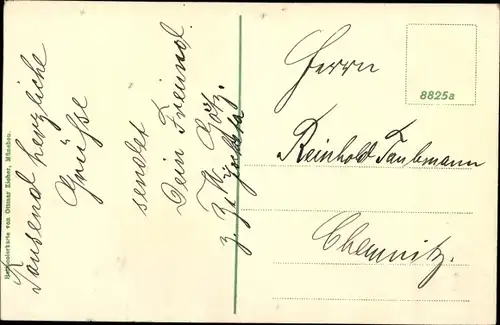 Tausend herzliche
Grüsse
sendet
Dein Freund
W. Götz.
z. Zt.
Herrn
Reinhold Taubmann
Chemnitz.
8825a
von Ottmar Zieher, München.